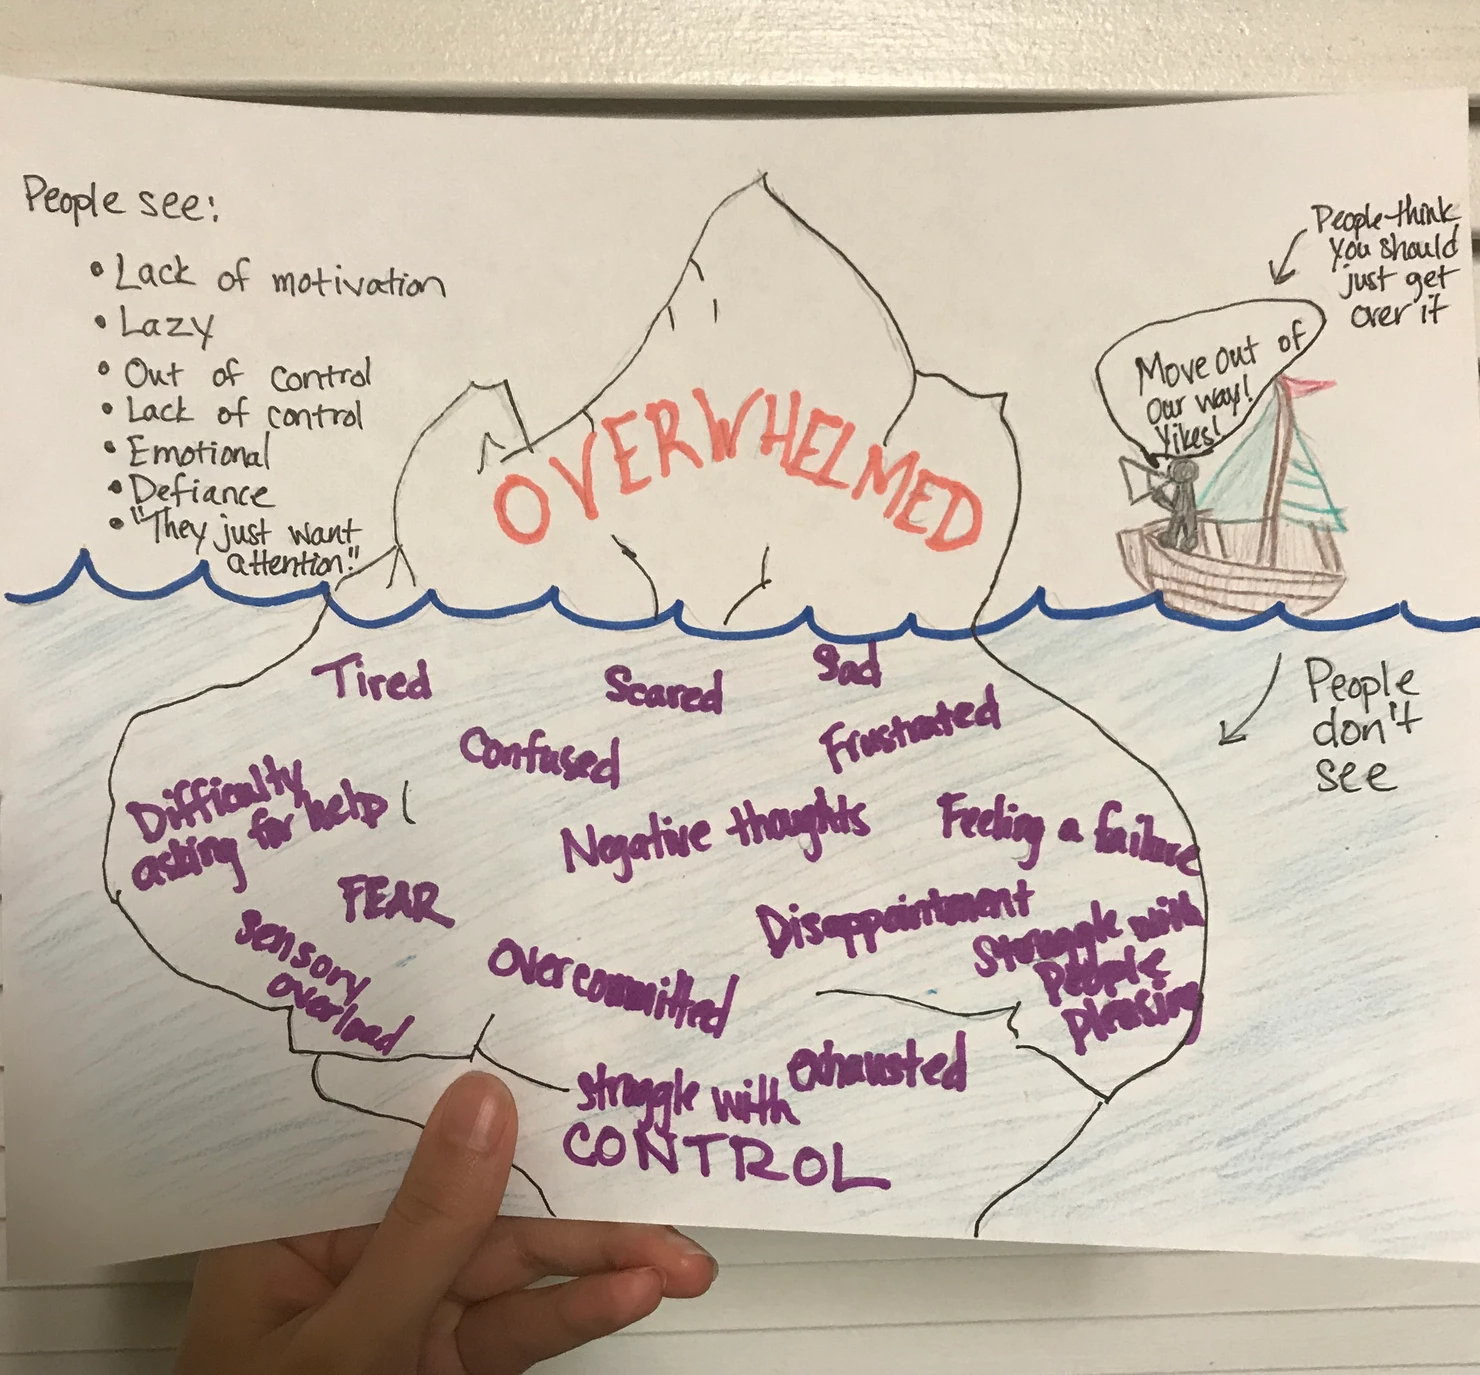 People see:
• Lack of motivation
• Lazy
• Out of control
• Lack of control
• Emotional
• Defiance
• "They just want
attention"
OVERWHELMED
People think
you should
just get
over it
Move out of
our way!
Yikes!
People
don't
see
Tired
Scared
Sad
Confused
Frustrated
Difficulty
asking for help
Negative thoughts
Feeling a failure
FEAR
Disappointment
Struggle with
people
pleasing
Sensory
overload
Overcommitted
exhausted
struggle with
CONTROL